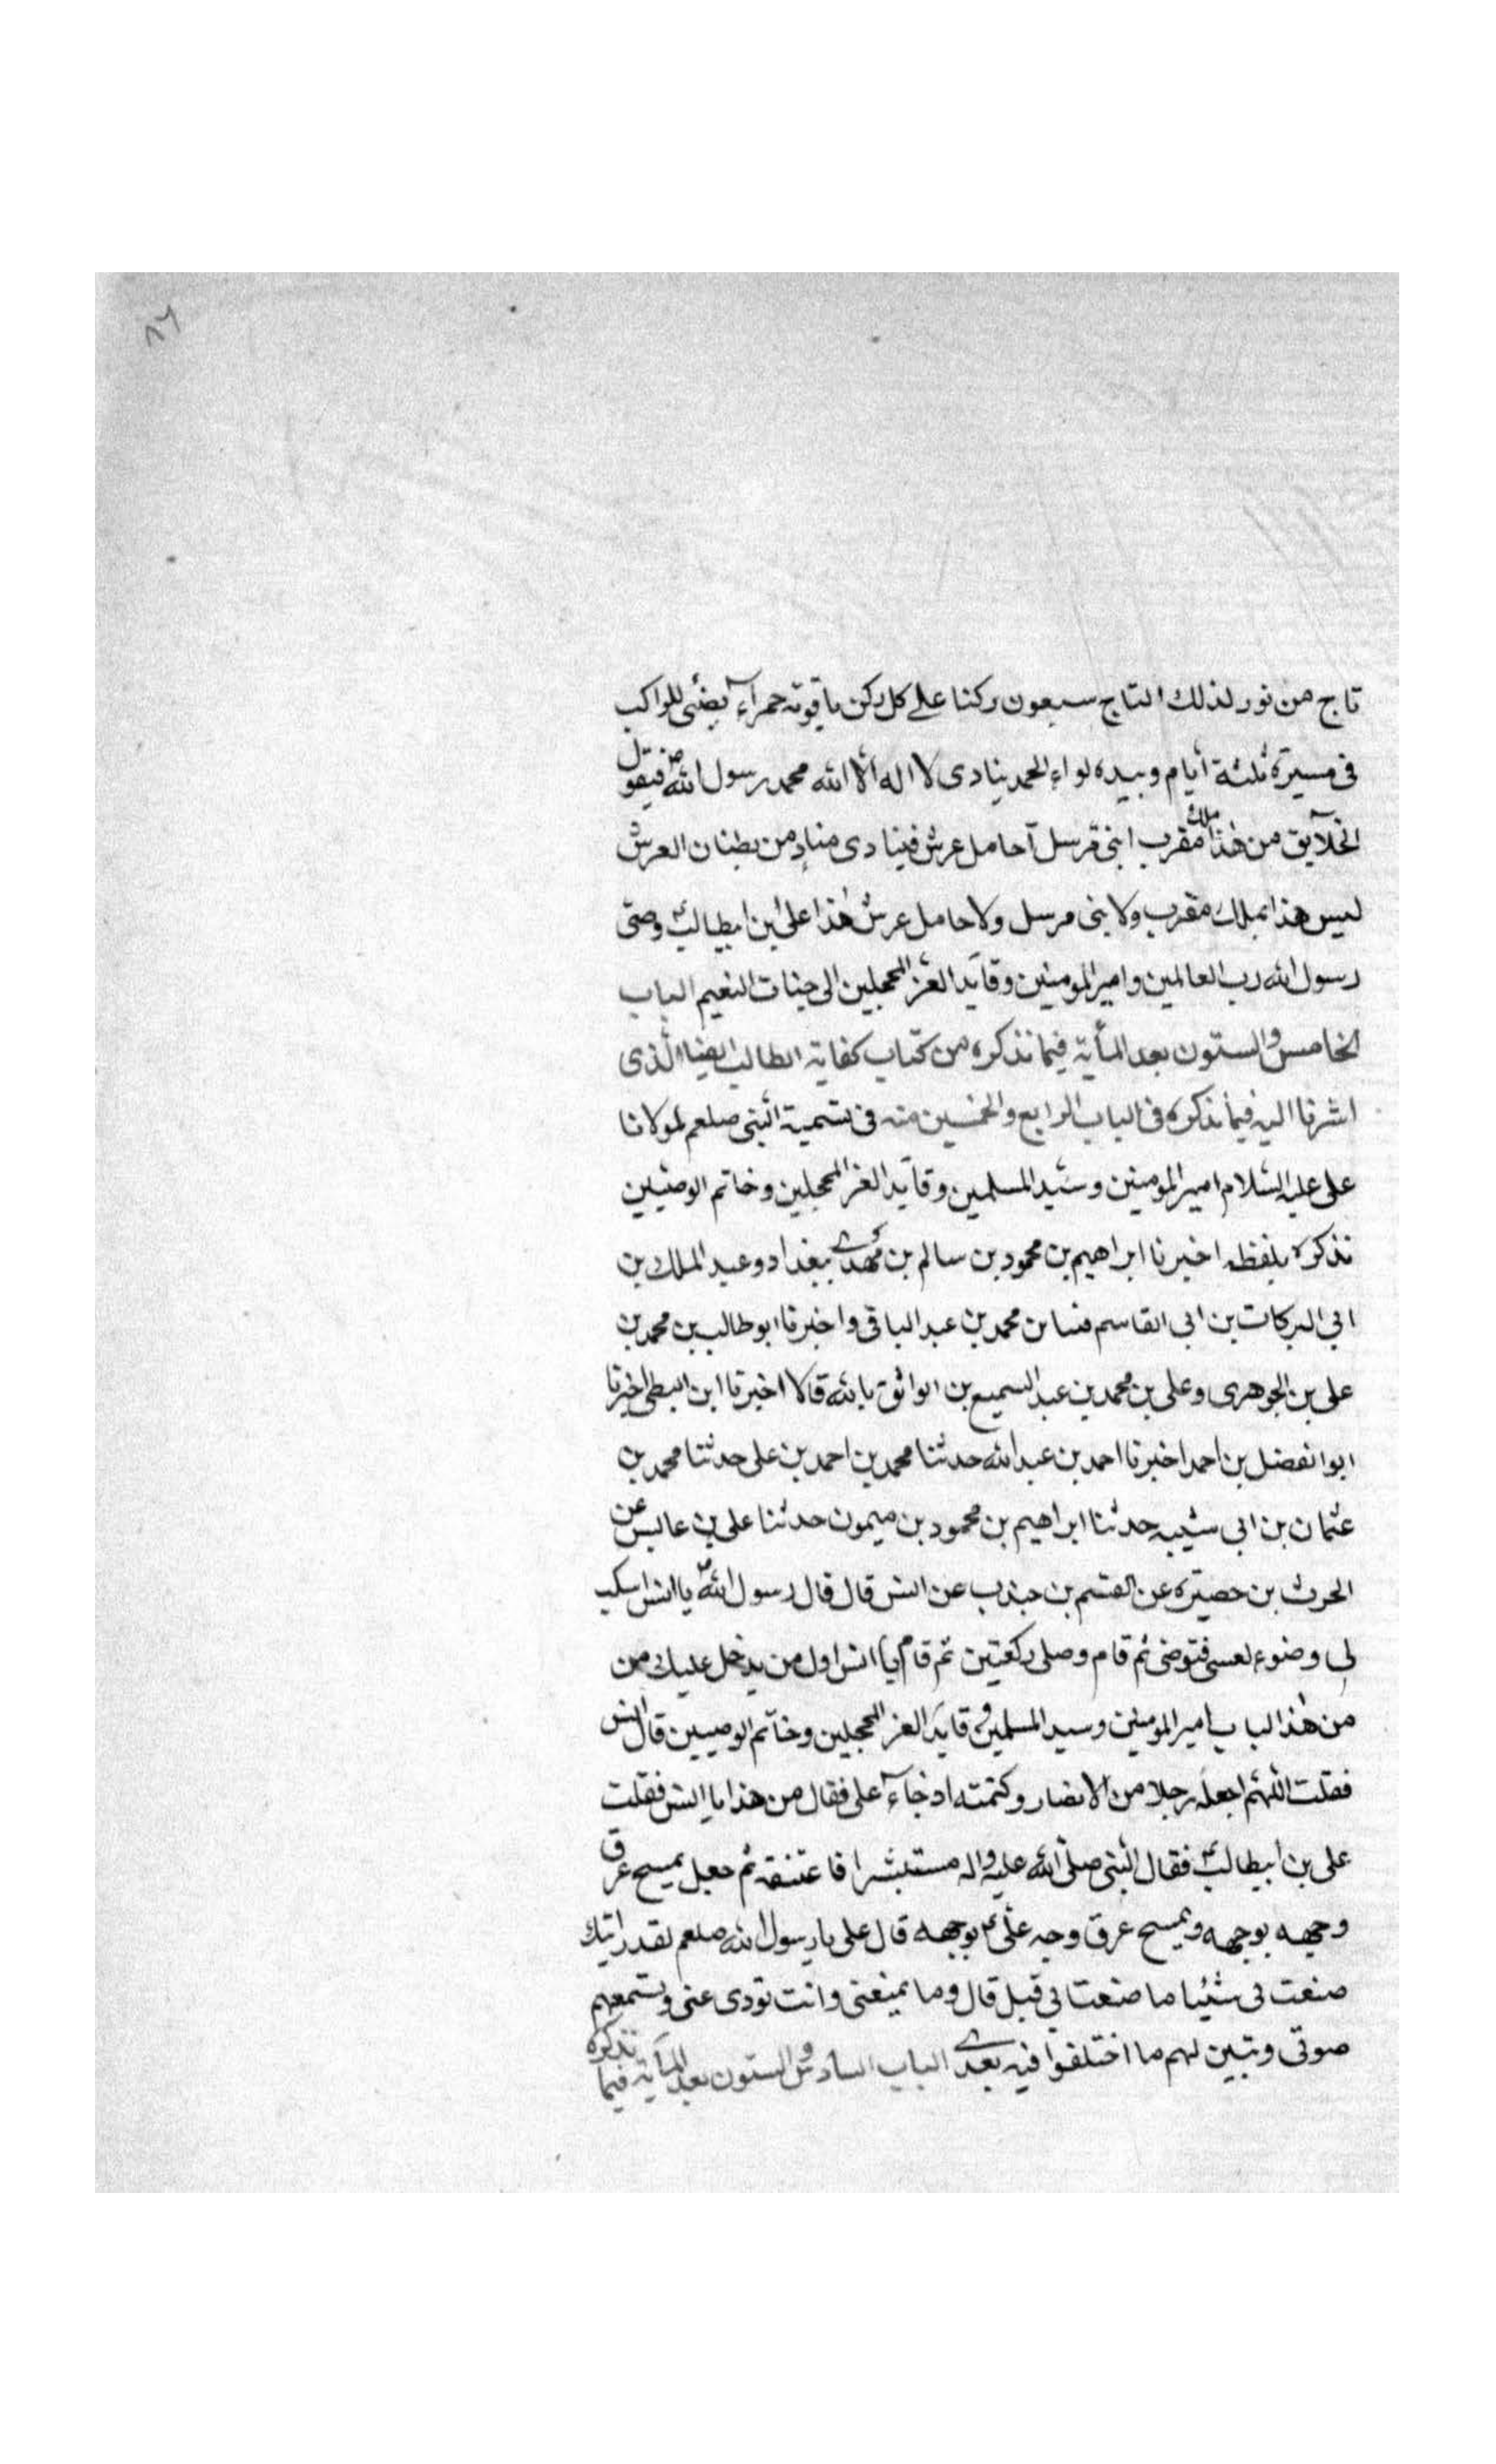 ٨٦
تاج من نور لذلك التاج سبعون ركنا على كل ركن ياقوته حمرآء يضئى للراكب
فى مسيرة ثلثة أيام وبيده لواء الحمد ينادى لا اله الا الله محمد رسول الله ص فيقول
الخلآيق من هذا ملك مقرب ابنى مرسل آحامل عرش فينادى منادٍ من بطنان العرش
ليس هذا بملك مقرب ولا بنى مرسل ولا حامل عرش هذا على بن ابيطالب ع وصى
رسول الله رب العالمين وامير المومنين وقآيد الغر المحجلين الى جنات النعيم الباب
الخامس والستون بعد المأية فيما نذكره من كتاب كفاية الطالب ايضا الذى
اشرنا اليه فيما نذكره فى الباب الرابع والخمسين منه فى تسمية النبى صلعم لمولانا
على عليه السلام امير المومنين وسيد المسلمين وقآيد الغر المحجلين وخاتم الوصيين
نذكره بلفظه اخبرنا ابراهيم بن محمود بن سالم بن مهدى ببغداد وعبد الملك بن
ابى البركات بن ابى القاسم محمد بن عبد الباقى واخبرنا ابو طالب بن محمد بن
على بن الجوهرى وعلى بن محمد بن عبد السميع بن الواثق بالله قالا اخبرنا ابن البطى اخبرنا
ابو الفضل بن احمد اخبرنا احمد بن عبد الله حدثنا محمد بن احمد بن على حدثنا محمد بن
عثمان بن ابى شيبه حدثنا ابراهيم بن محمود بن ميمون حدثنا على بن عابس عن
الحرث بن حصيره عن القسم بن جندب عن انس قال قال رسول الله ص يا انس اسكب
لى وضوء فتوضى ثم قام وصلى ركعتين ثم قام يا انس اول من يدخل عليك من
من هذا الباب امير المومنين وسيد المسلمين وقآيد الغر المحجلين وخاتم الوصيين قال انس
فقلت اللهم اجعله رجلا من الانصار وكتمته اذ جآء على فقال من هذا يا انس فقلت
على بن ابيطالب ع فقال النبى صلى الله عليه واله مستبشرا فاعتنقه ثم جعل يمسح عرق
وجهه بوجهه ويمسح عرق وجه على ع بوجهه قال على يا رسول الله صلعم لقد رايتك
صنعت بى شيئا ما صنعت بى قبل قال وما يمنعنى وانت تودى عنى وتسمعهم
صوتى وتبين لهم ما اختلفوا فيه بعدى الباب السادس والستون بعد المآية فيما نذكره